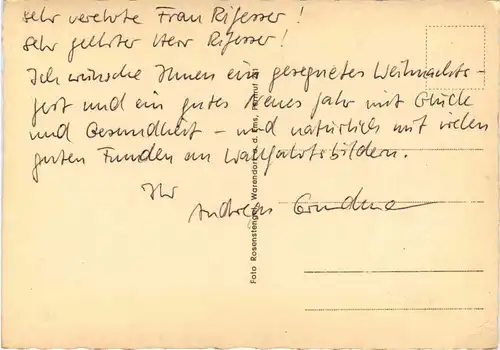 sehr verehrte Frau Rifesser!
sehr geehrter Herr Rifesser!
Ich wünsche Ihnen ein gesegnetes Weihnachts-
fest und ein gutes Neues Jahr mit Glück
und Gesundheit – und natürlich mit vielen
guten Funden an Wallfahrtsbildern.
Ihr
Andreas
Foto Rosenstengel, Warendorf a. d. Ems, Fernruf